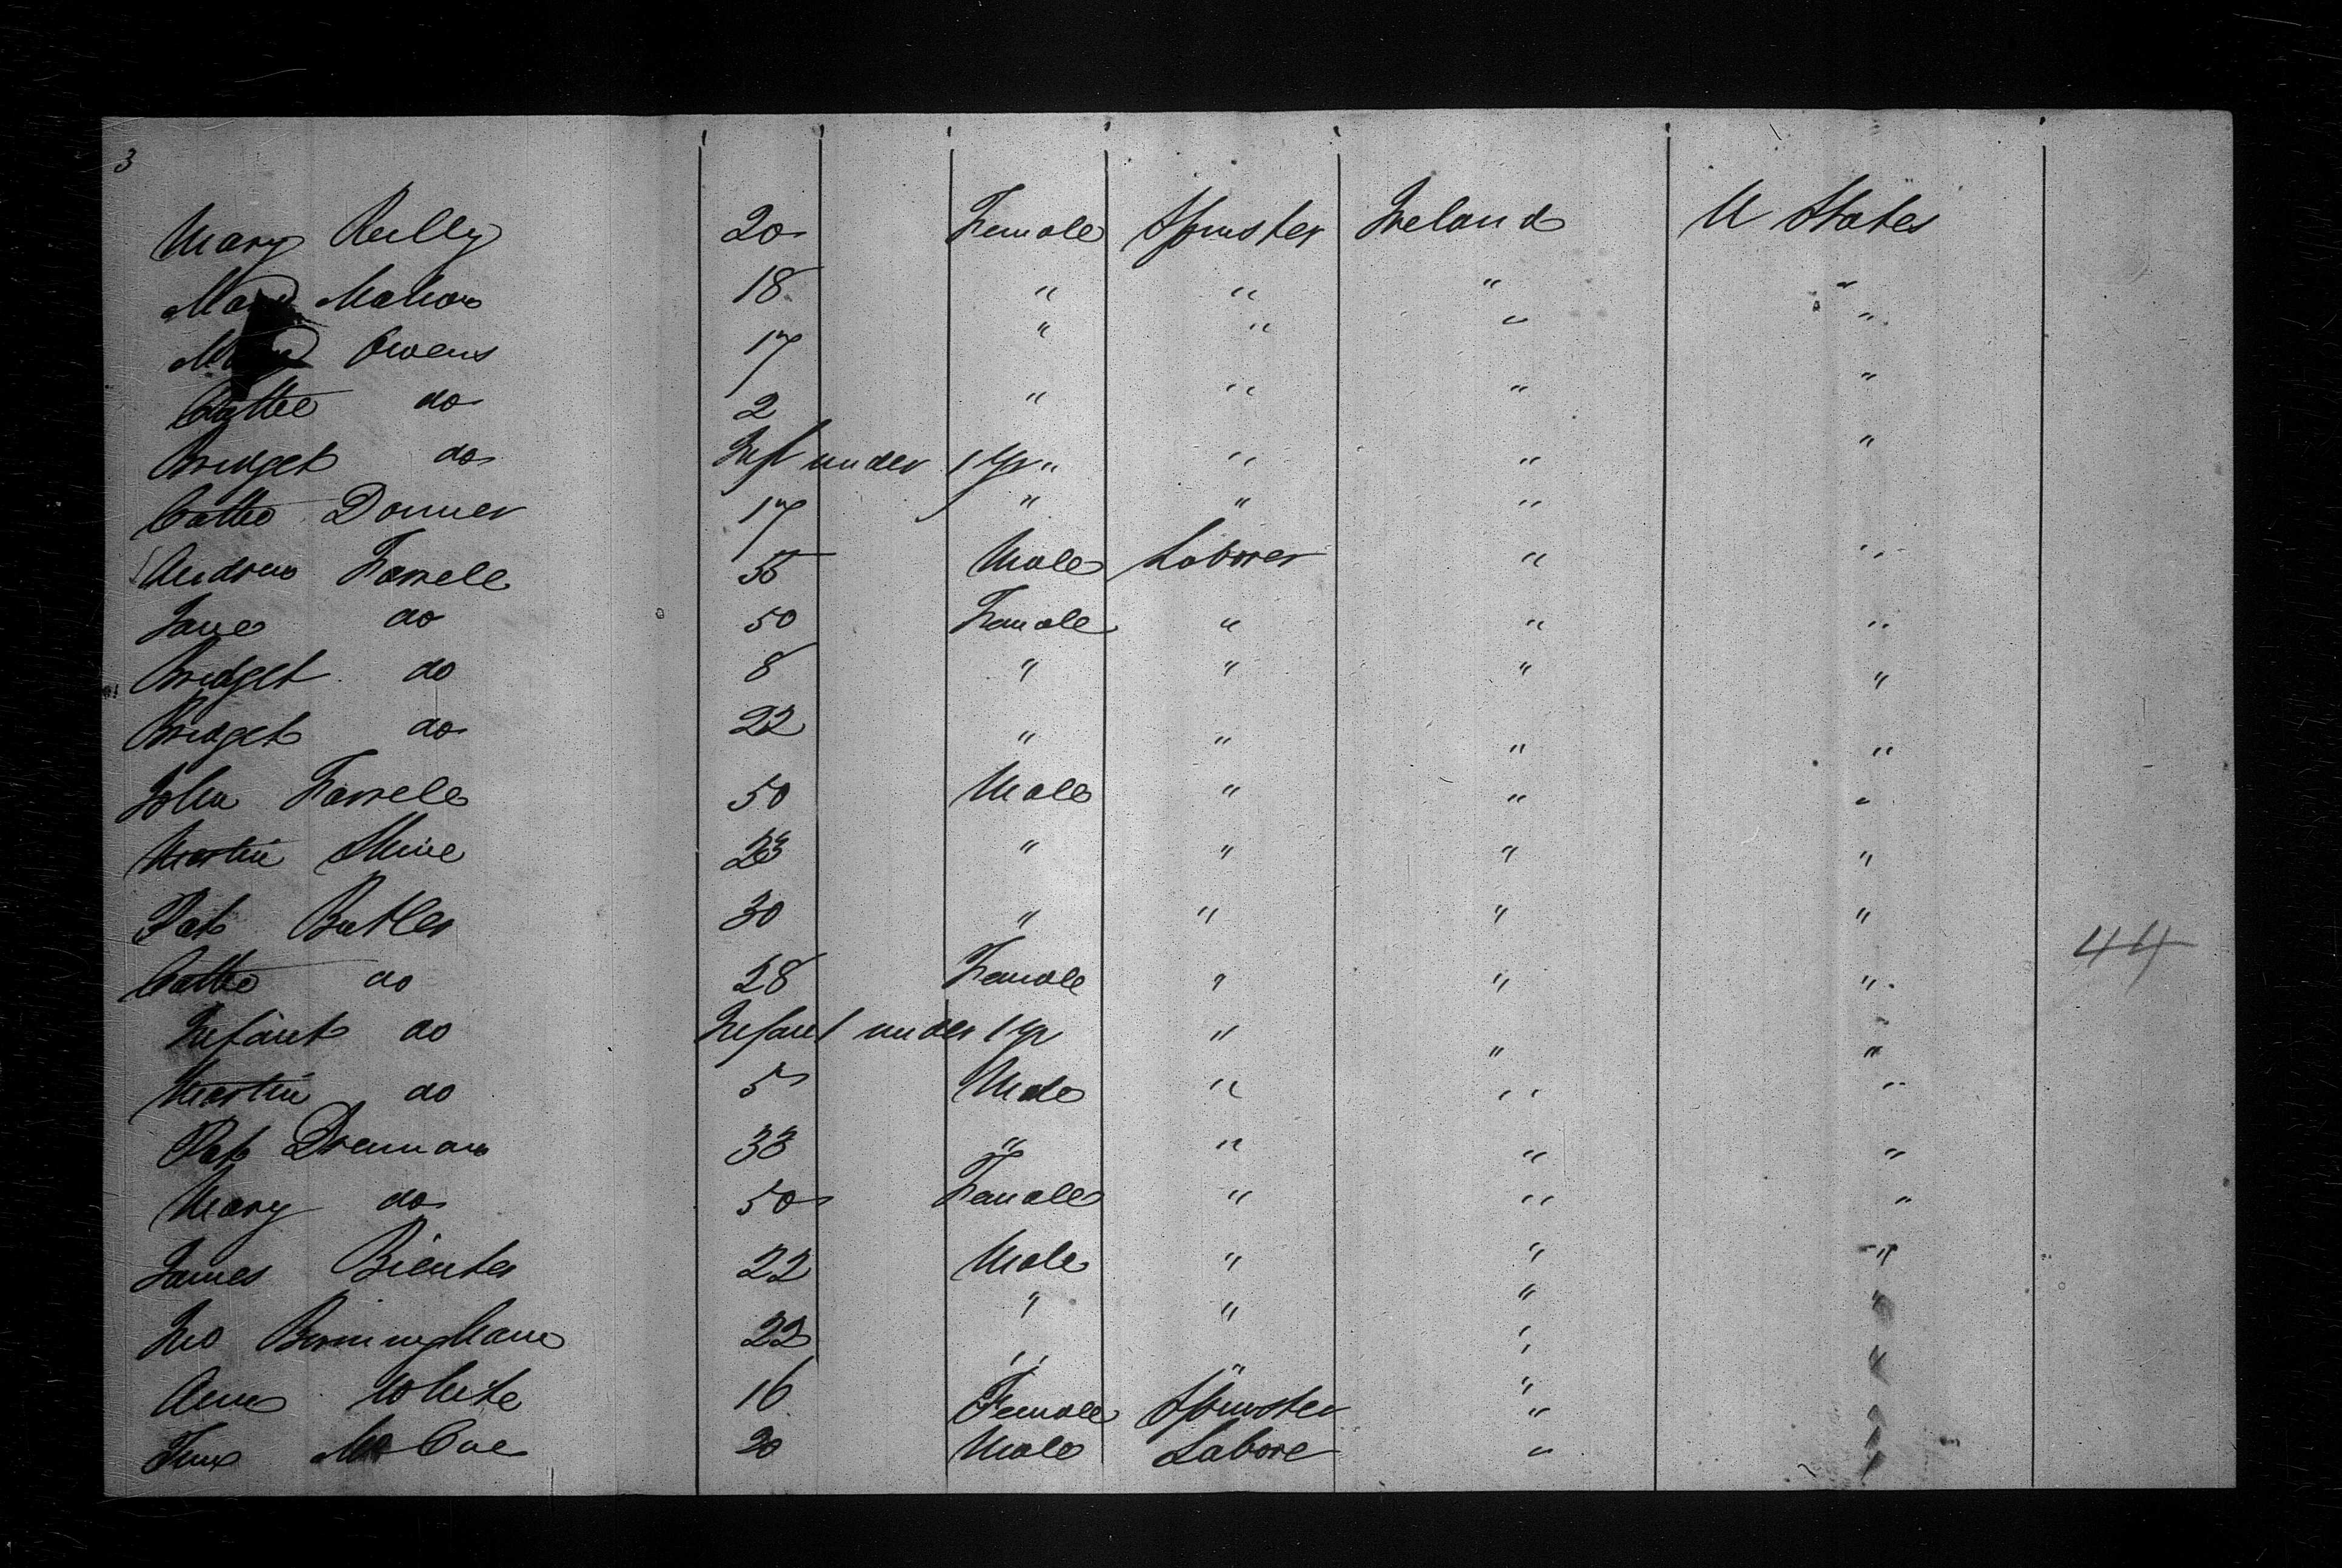 3
Mary Reilly 20 Female Spinster Ireland U States
Mary Mahon 18 " " " "
Mary Owens 17 " " " "
Cathe do 2 " " " "
Bridget do Inft under 1 yr " " " "
Cathe Donner 17 " " " "
Andrew Farrell 55 Male Laborer " "
Jane do 50 Female " " "
Bridget do 8 " " " "
Bridget do 22 " " " "
John Farrell 50 Male " " "
Martin Shine 23 " " " "
Pat Butler 30 " " " "
Cathe do 28 Female " " "
Infant do Infant under 1 yr " " "
Martin do 5 Male " " "
Pat Drennan 33 " " " "
Mary do 50 Female " " "
James 22 Male " " "
Jno Birmingham 22 " " " "
Ann White 16 Female Spinster " "
Mc Cue 20 Male Labore " "
44